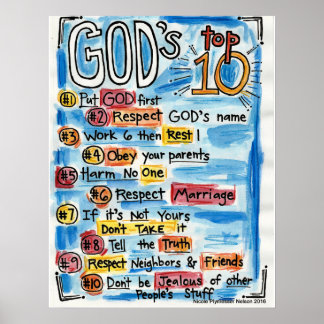 GOD's top
10
#1 Put GOD first
#2 Respect GOD's name
#3 Work 6 then Rest 1
#4 Obey your parents
#5 Harm No One
#6 Respect Marriage
#7 If it's Not Yours
Don't TAKE it
#8 Tell the Truth
#9 Respect Neighbors & Friends
#10 Dont be Jealous of other
People's Stuff
Nicole Plymesser Nelson 2016